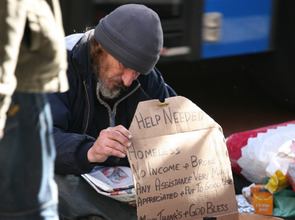 HELP NEEDED
HOMELESS
NO INCOME + BROKE
ANY ASSISTANCE VERY MUCH
APPRECIATED + PUT TO GOOD USE
MANY THANKS + GOD BLESS